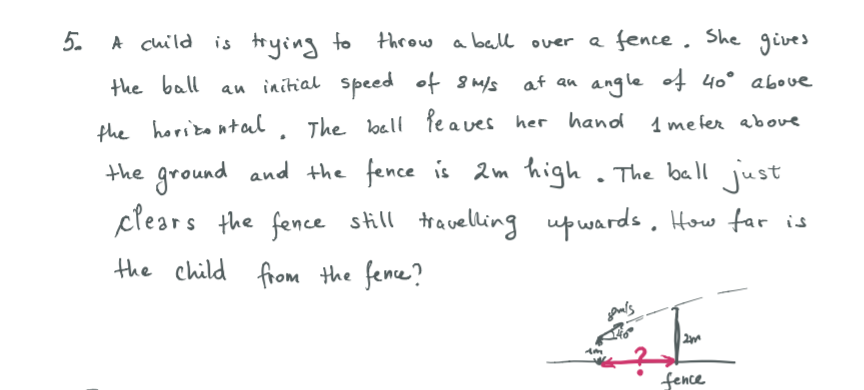 5. A child is trying to throw a ball over a fence. She gives
the ball an initial speed of 8 m/s at an angle of 40° above
the horizontal. The ball leaves her hand 1 meter above
the ground and the fence is 2m high. The ball just
clears the fence still travelling upwards. How far is
the child from the fence?
8m/s
40°
2m
1m
?
fence